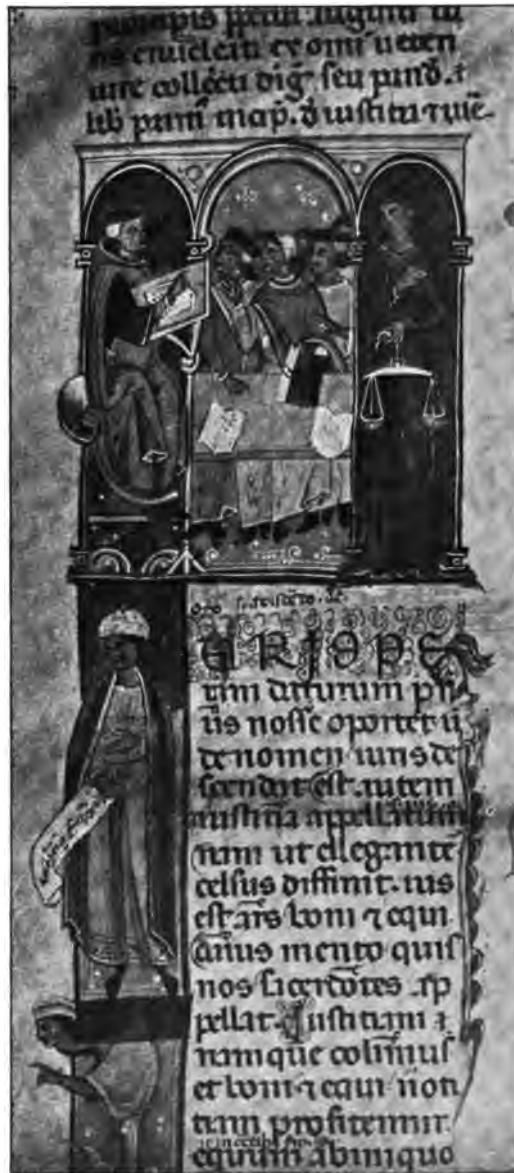 principis augusti iu
ris enucleati ex omi ueteri
iure collecti dig seu pand. ⁊
lib primi incip. d iustitia ⁊ iure
URIOPE
ram daturum pri
us nosse oportet u
de nomen iuris de
scendat Est autem
a iustitia appellatum
nam ut ellegante
celsus diffinit. ius
est ars boni ⁊ equi
cuius merito quis
nos sacerdotes ap
pellat. Justitiam
namque colimus
et boni ⁊ equi noti
tiam profitemur
equum ab iniquo